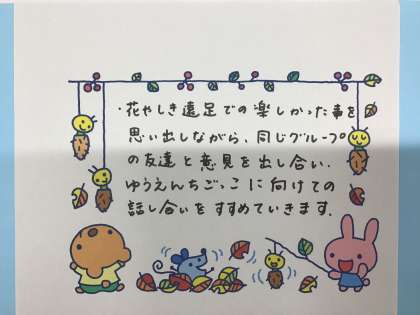 ・花やしき遠足での楽しかった事を
思い出しながら、同じグループ
の友達と意見を出し合い、
ゆうえんちごっこに向けての
話し合いをすすめていきます。